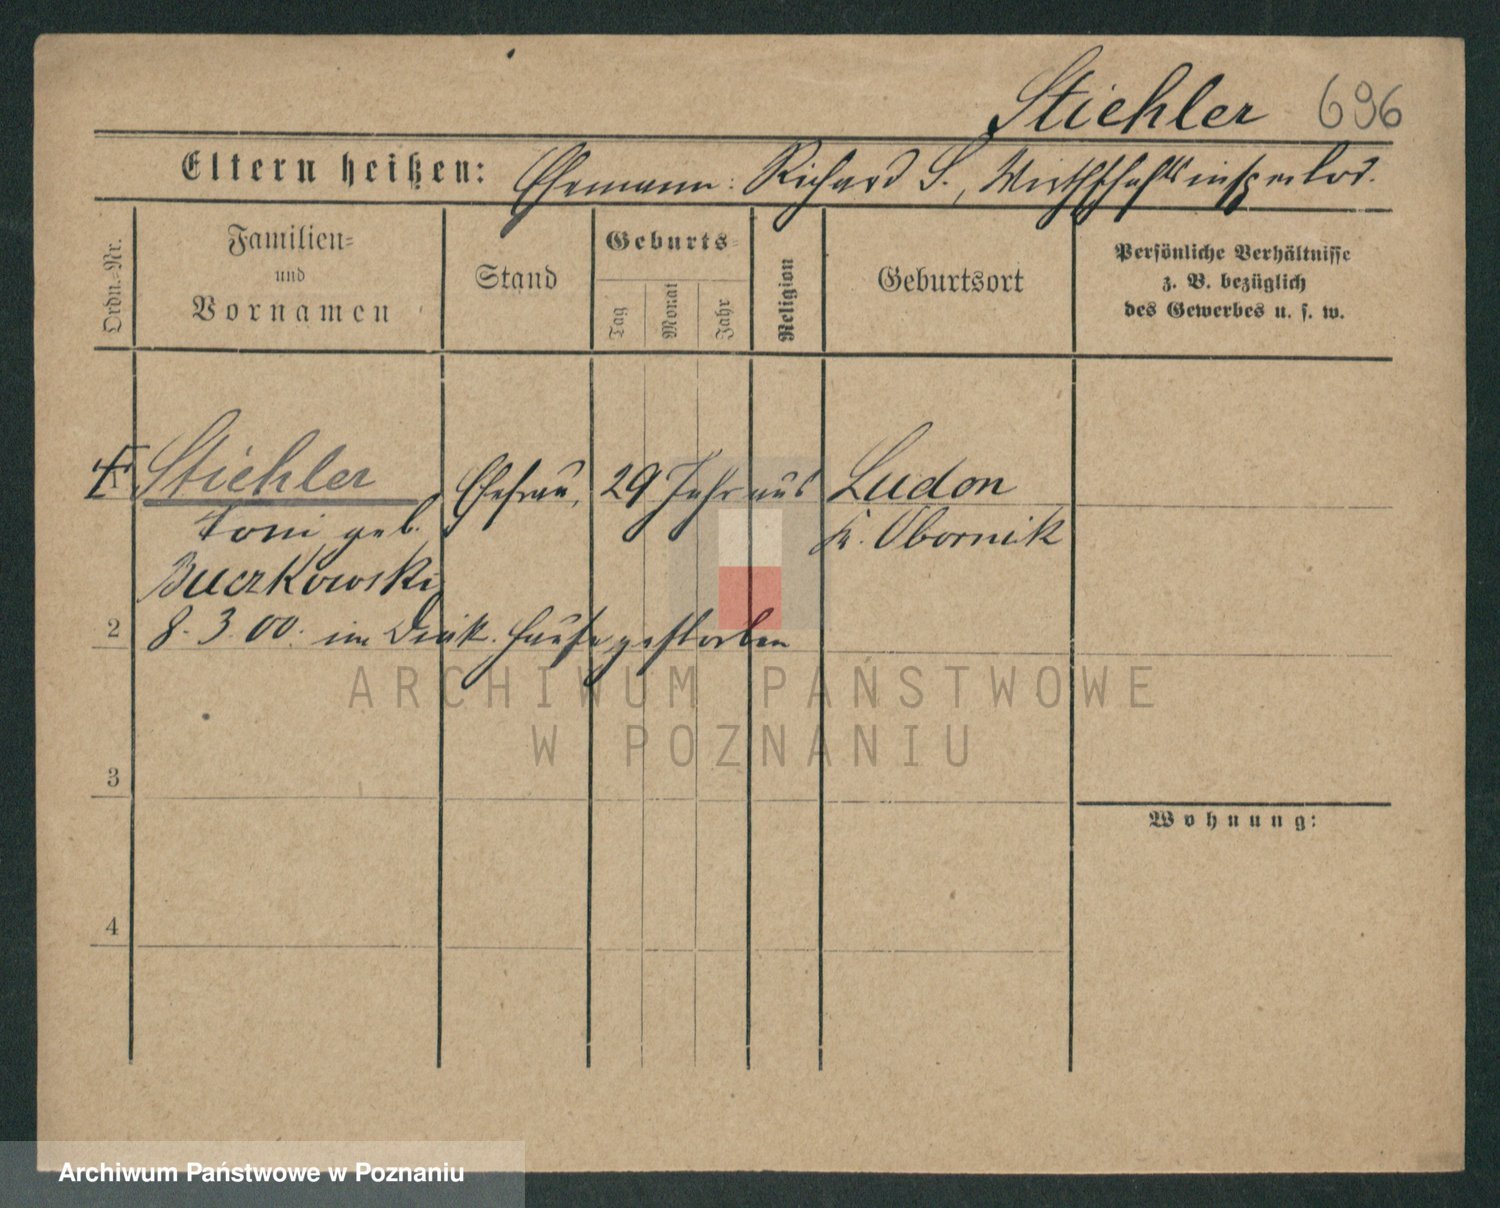 Stiehler 696
Eltern heißen: Ehemann: Richard S., Wirthschaftsinspektor.
Ordn.-Nr.
Familien-
und
Vornamen
Stand
Geburts-
Tag
Monat
Jahr
Religion
Geburtsort
Persönliche Verhältnisse
z. B. bezüglich
des Gewerbes u. s. w.
Stiehler Ehefrau, 29 Jahr aus Ludom
Toni geb. Kr. Obornik
Buczkowski
2 8. 3. 00. im Diak. Hause gestorben
ARCHIWUM PAŃSTWOWE
W POZNANIU
3
Wohnung:
4
Archiwum Państwowe w Poznaniu